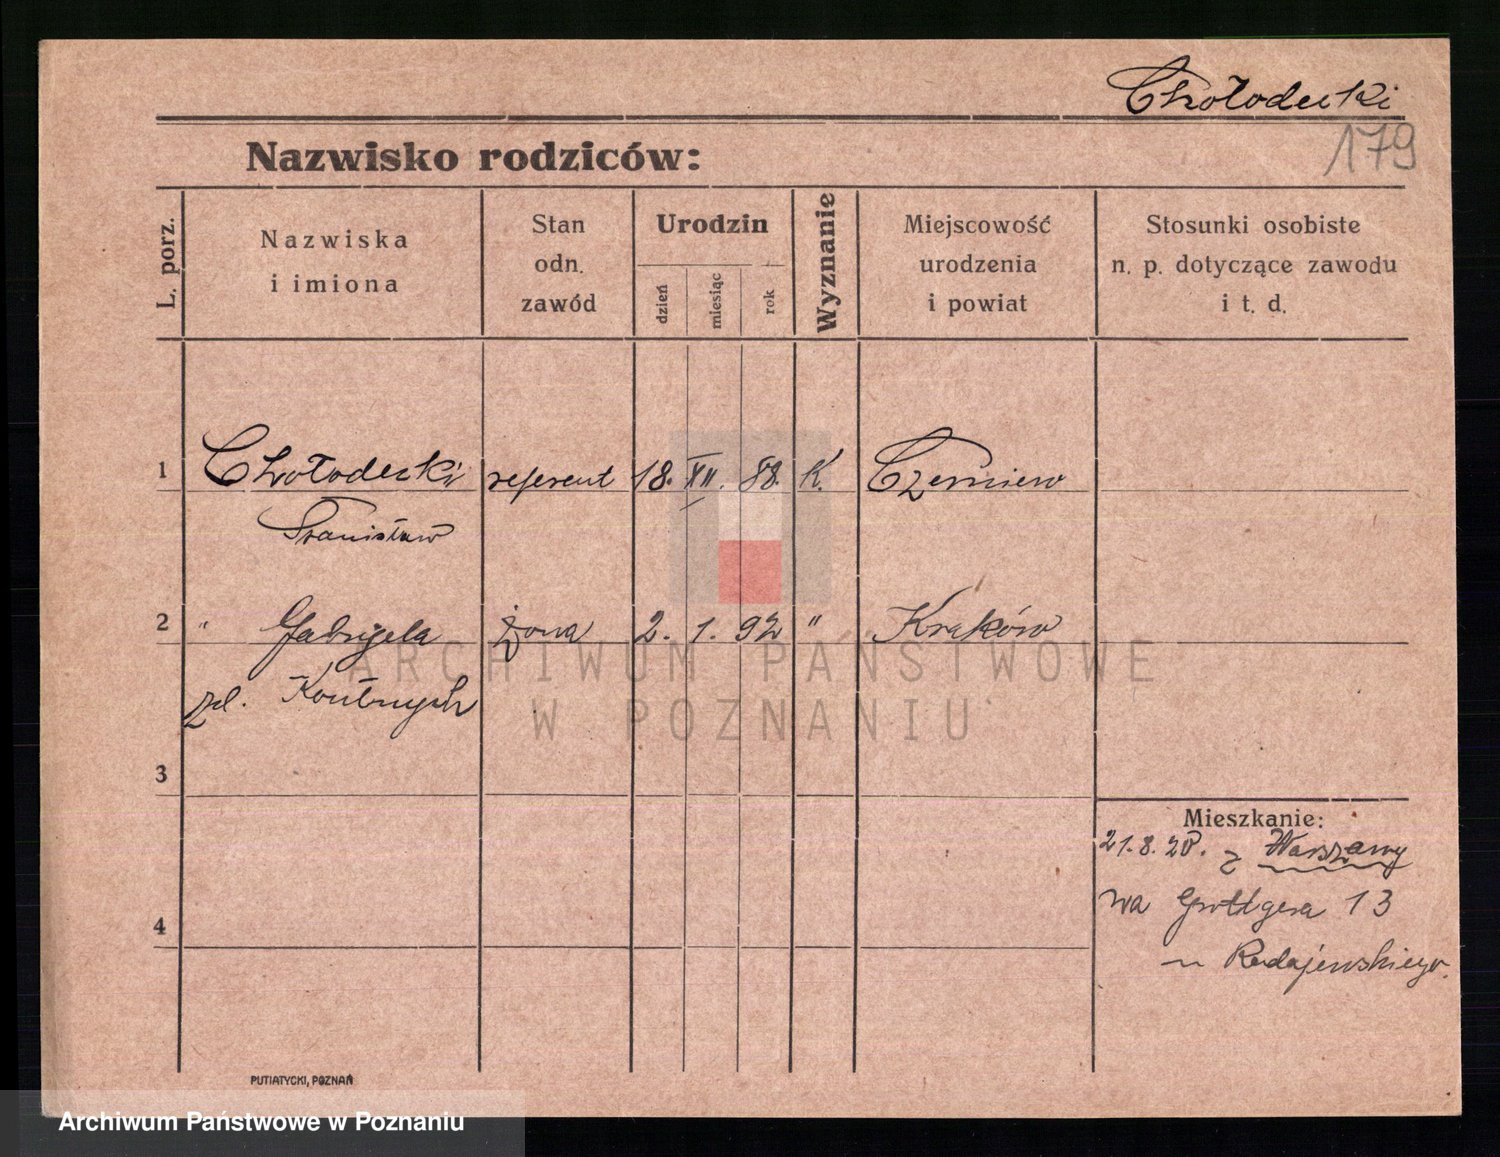 Chołodecki
179
Nazwisko rodziców:
L. porz.
Nazwiska
i imiona
Stan
odn.
zawód
Urodzin
dzień
miesiąc
rok
Wyznanie
Miejscowość
urodzenia
i powiat
Stosunki osobiste
n. p. dotyczące zawodu
i t. d.
1 Chołodecki referent 18. XII. 88. K. Czerniew
Stanisław
2 " Gabryela żona 2. 1. 92 " Kraków
zd.
3
Mieszkanie:
21.8.20. z Warszawy
na Grottgera 13
u Radajewskiego.
4
PUTIATYCKI, POZNAŃ
ARCHIWUM PAŃSTWOWE
W POZNANIU
Archiwum Państwowe w Poznaniu